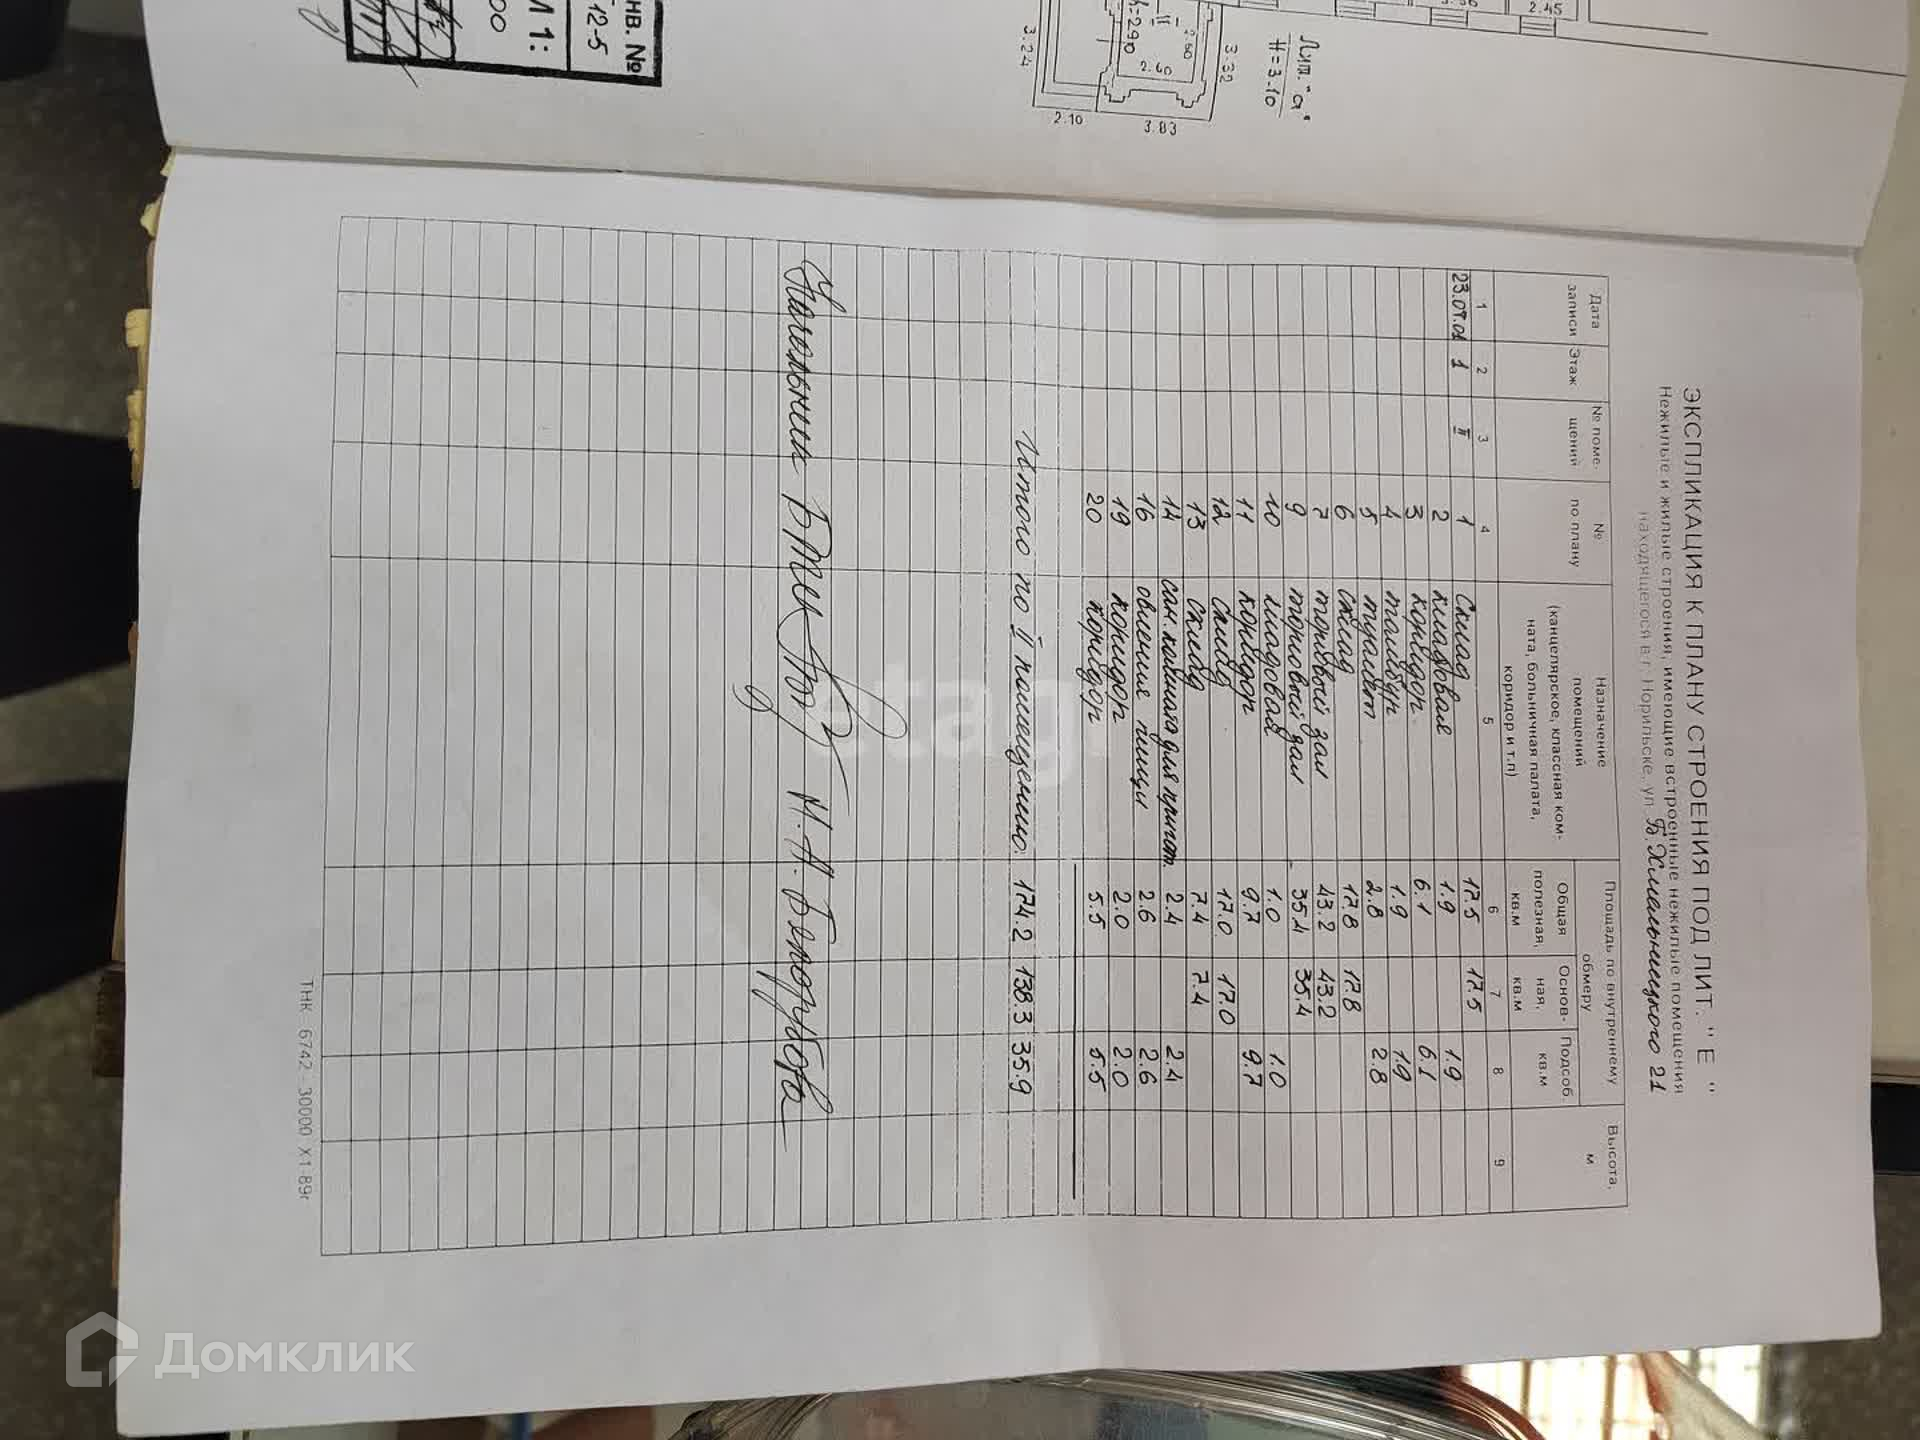 НВ. №
12-5
М 1:
00
2.45
Лит. "а"
H=3.10
3.32
3.24
2.10
3.83
2.60
2.65
h=2.90
ЭКСПЛИКАЦИЯ К ПЛАНУ СТРОЕНИЯ ПОД ЛИТ. "Е"
Нежилые и жилые строения, имеющие встроенные нежилые помещения
находящегося в г. Норильске, ул. Б.Хмельницкого 21
Дата записи Этаж № помещений № по плану Назначение помещений (канцелярское, классная комната, больничная палата, коридор и т.п) Площадь по внутреннему обмеру Общая полезная, кв.м Основная, кв.м Подсоб. кв.м Высота, м
1 2 3 4 5 6 7 8 9
23.07.01 1 II 1 Склад 17.5 17.5
2 кладовая 1.9 1.9
3 коридор 6.1 6.1
4 тамбур 1.9 1.9
5 туалет 2.8 2.8
6 склад 17.8 17.8
7 торговый зал 43.2 43.2
9 торговый зал 35.4 35.4
10 кладовая 1.0 1.0
11 коридор 9.7 9.7
12 склад 17.0 17.0
13 склад 7.4 7.4
14 сан. комната для пригот. 2.4 2.4
16 овления пищи 2.6 2.6
19 коридор 2.0 2.0
20 коридор 5.5 5.5
Итого по II помещению: 174.2 138.3 35.9
Начальник БТИ
ТНК 6742 - 30000 X1-89г
etagi
Домклик